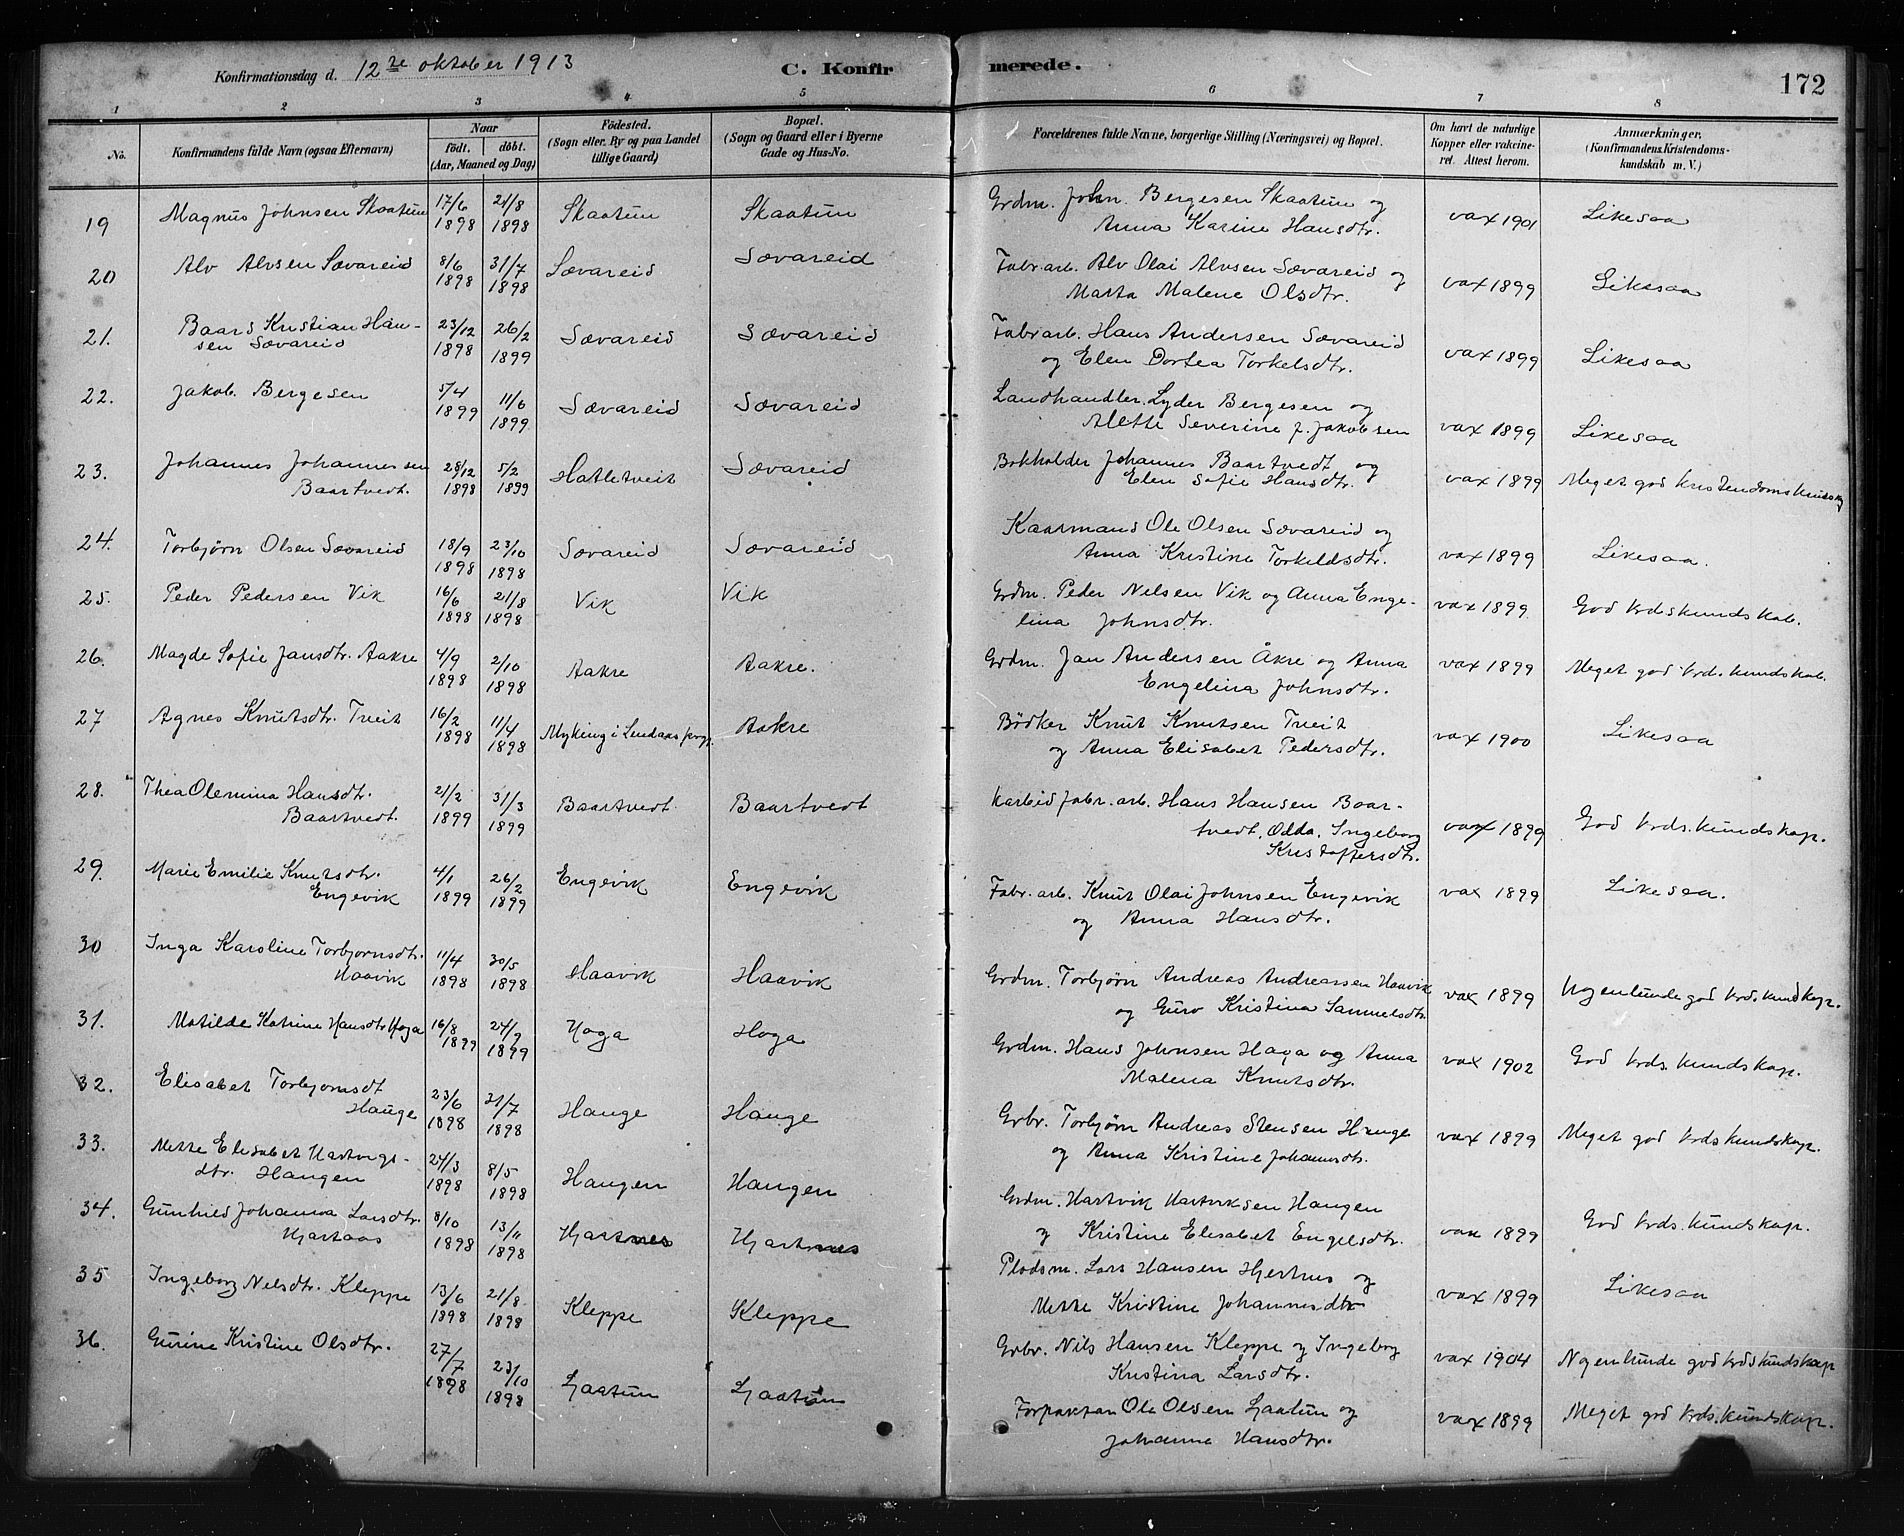 Konfirmationsdag d. 12te oktober 1913 C. Konfirmerede. 172
1 2 3 4 5 6 7 8
No. Konfirmandens fulde Navn (ogsaa Efternavn) Naar født. døbt. (Aar, Maaned og Dag) Fødested. (Sogn eller By og paa Landet tillige Gaard) Bopæl. (Sogn og Gaard eller i Byerne Gade og Hus-No. Forældrenes fulde Navne, borgerlige Stilling (Næringsvei) og Bopæl. Om havt de naturlige Kopper eller vakcineret. Attest herom. Anmærkninger. (Konfirmandens Kristendomskundskab m. V.)
19 Magnus Johnsen Skaatun 17/6 1898 21/8 1898 Skaatun Skaatun Grdm. John Bergesen Skaatun og
Anna Karine Hansdtr. vax 1901 Likesaa
20 Alv Alvsen Sævareid 8/6 1898 31/7 1898 Sævareid Sævareid Fabr. arb. Alv Olai Alvsen Sævareid og
Marta Malene Olsdtr. vax 1899 Likesaa
21. Baard Kristian Han-
sen Sævareid 23/12 1898 26/2 1899 Sævareid Sævareid Fabr arb. Hans Andersen Sævareid
og Elen Dortea Torkelsdtr. vax 1899 Likesaa
22. Jakob Bergesen 5/4 1899 11/6 1899 Sævareid Sævareid Landhandler Lyder Bergesen og
Alette Severine f. Jakobsen vax 1899 Likesaa
23. Johannes Johannessen
Baartvedt. 28/12 1898 5/2 1899 Hatletveit Sævareid Bokholder Johannes Baartvedt og
Elen Sofie Hansdtr. vax 1899 Meget god kristendomskundsk
24. Torbjørn Olsen Sævareid 18/9 1898 23/10 1898 Sævareid Sævareid Kaarmand Ole Olsen Sævareid og
Anna Kristine Torkeldsdtr. vax 1899 Likesaa.
25. Peder Pedersen Vik 16/6 1898 21/8 1898 Vik Vik Grdm. Peder Nelsen Vik og Anna Enge-
lina Johnsdtr. vax 1899 God krdskundskab.
26. Magde Sofie Jansdtr. Aakre 4/9 1898 2/10 1898 Aakre Aakre. Grdm. Jan Andersen Åkre og Anna
Engelina Johnsdtr. vax 1899 Meget god krds. kundskab.
27 Agnes Knutsdtr. Tveit 16/2 1898 11/4 1898 Myking i Lindaas prgj. Aakre Bødker Knut Knutsen Tveit
og Anna Elisabet Pedersdtr. vax 1900 Likesaa
28. Thea Olemina Hansdtr.
Baartvedt. 21/2 1899 31/3 1899 Baartvedt Baartvedt Karbidfabr. arb. Hans Hansen Baar-
tvedt, Odda, Ingeborg
Kristoffersdtr. vax 1899 God krds. kundskap.
29. Marie Emilie Knutsdtr.
Engevik 4/1 1899 26/2 1899 Engevik Engevik Fabr. arb. Knut Olai Johnsen Engevik
og Anna Hansdtr. vax 1899 Likesaa.
30 Inga Karoline Torbjørnsdtr.
Haavik 11/4 1898 30/5 1898 Haavik Haavik Grdm. Torbjørn Andreas Andreassen Haavik
og Guro Kristina Samuelsdtr. vax 1899 Nogenlunde god krds. kundskap.
31. Matilde Katrine Hansdtr Hoga 16/8 1899 24/9 1899 Hoga Hoga Grdm. Hans Johnsen Haga og Anna
Malena Knutsdtr. vax 1902 God krds. kundskap.
32. Elisabet Torbjørnsdt
Hauge 23/6 1898 31/7 1898 Hauge Hauge Grbr. Torbjørn Andreas Stensen Hauge
og Anna Kristine Johannsdtr. vax 1899 Meget god krds kundskap.
33. Mette Elisabet Hartvigs-
dtr. Haugen 24/3 1898 8/5 1898 Haugen Haugen Grdm. Hartvik Hartviksen Haugen
og Kristine Elisabet Engelsdtr. vax 1899 God krds. kundskap.
34. Gunhild Johanna Larsdtr.
Hjartaas 8/10 1898 13/11 1898 Hjartnes Hjartnes Pladsm. Lars Hansen Hjertnes og
Mette Kristine Johannesdtr vax 1899 Likesaa
35 Ingeborg Nelsdtr. Kleppe 13/6 1898 21/8 1898 Kleppe Kleppe Grbr. Nils Hansen Kleppe og Ingeborg
Kristina Larsdtr. vax 1904 Nogenlunde god krdskundskap
36. Gurine Kristine Olsdtr. 27/7 1898 23/10 1898 Ljaatun Ljaatun Forpaktar Ole Olsen Ljaatun og
Johanna Hansdtr. vax 1899 Meget god krds. kundskap.